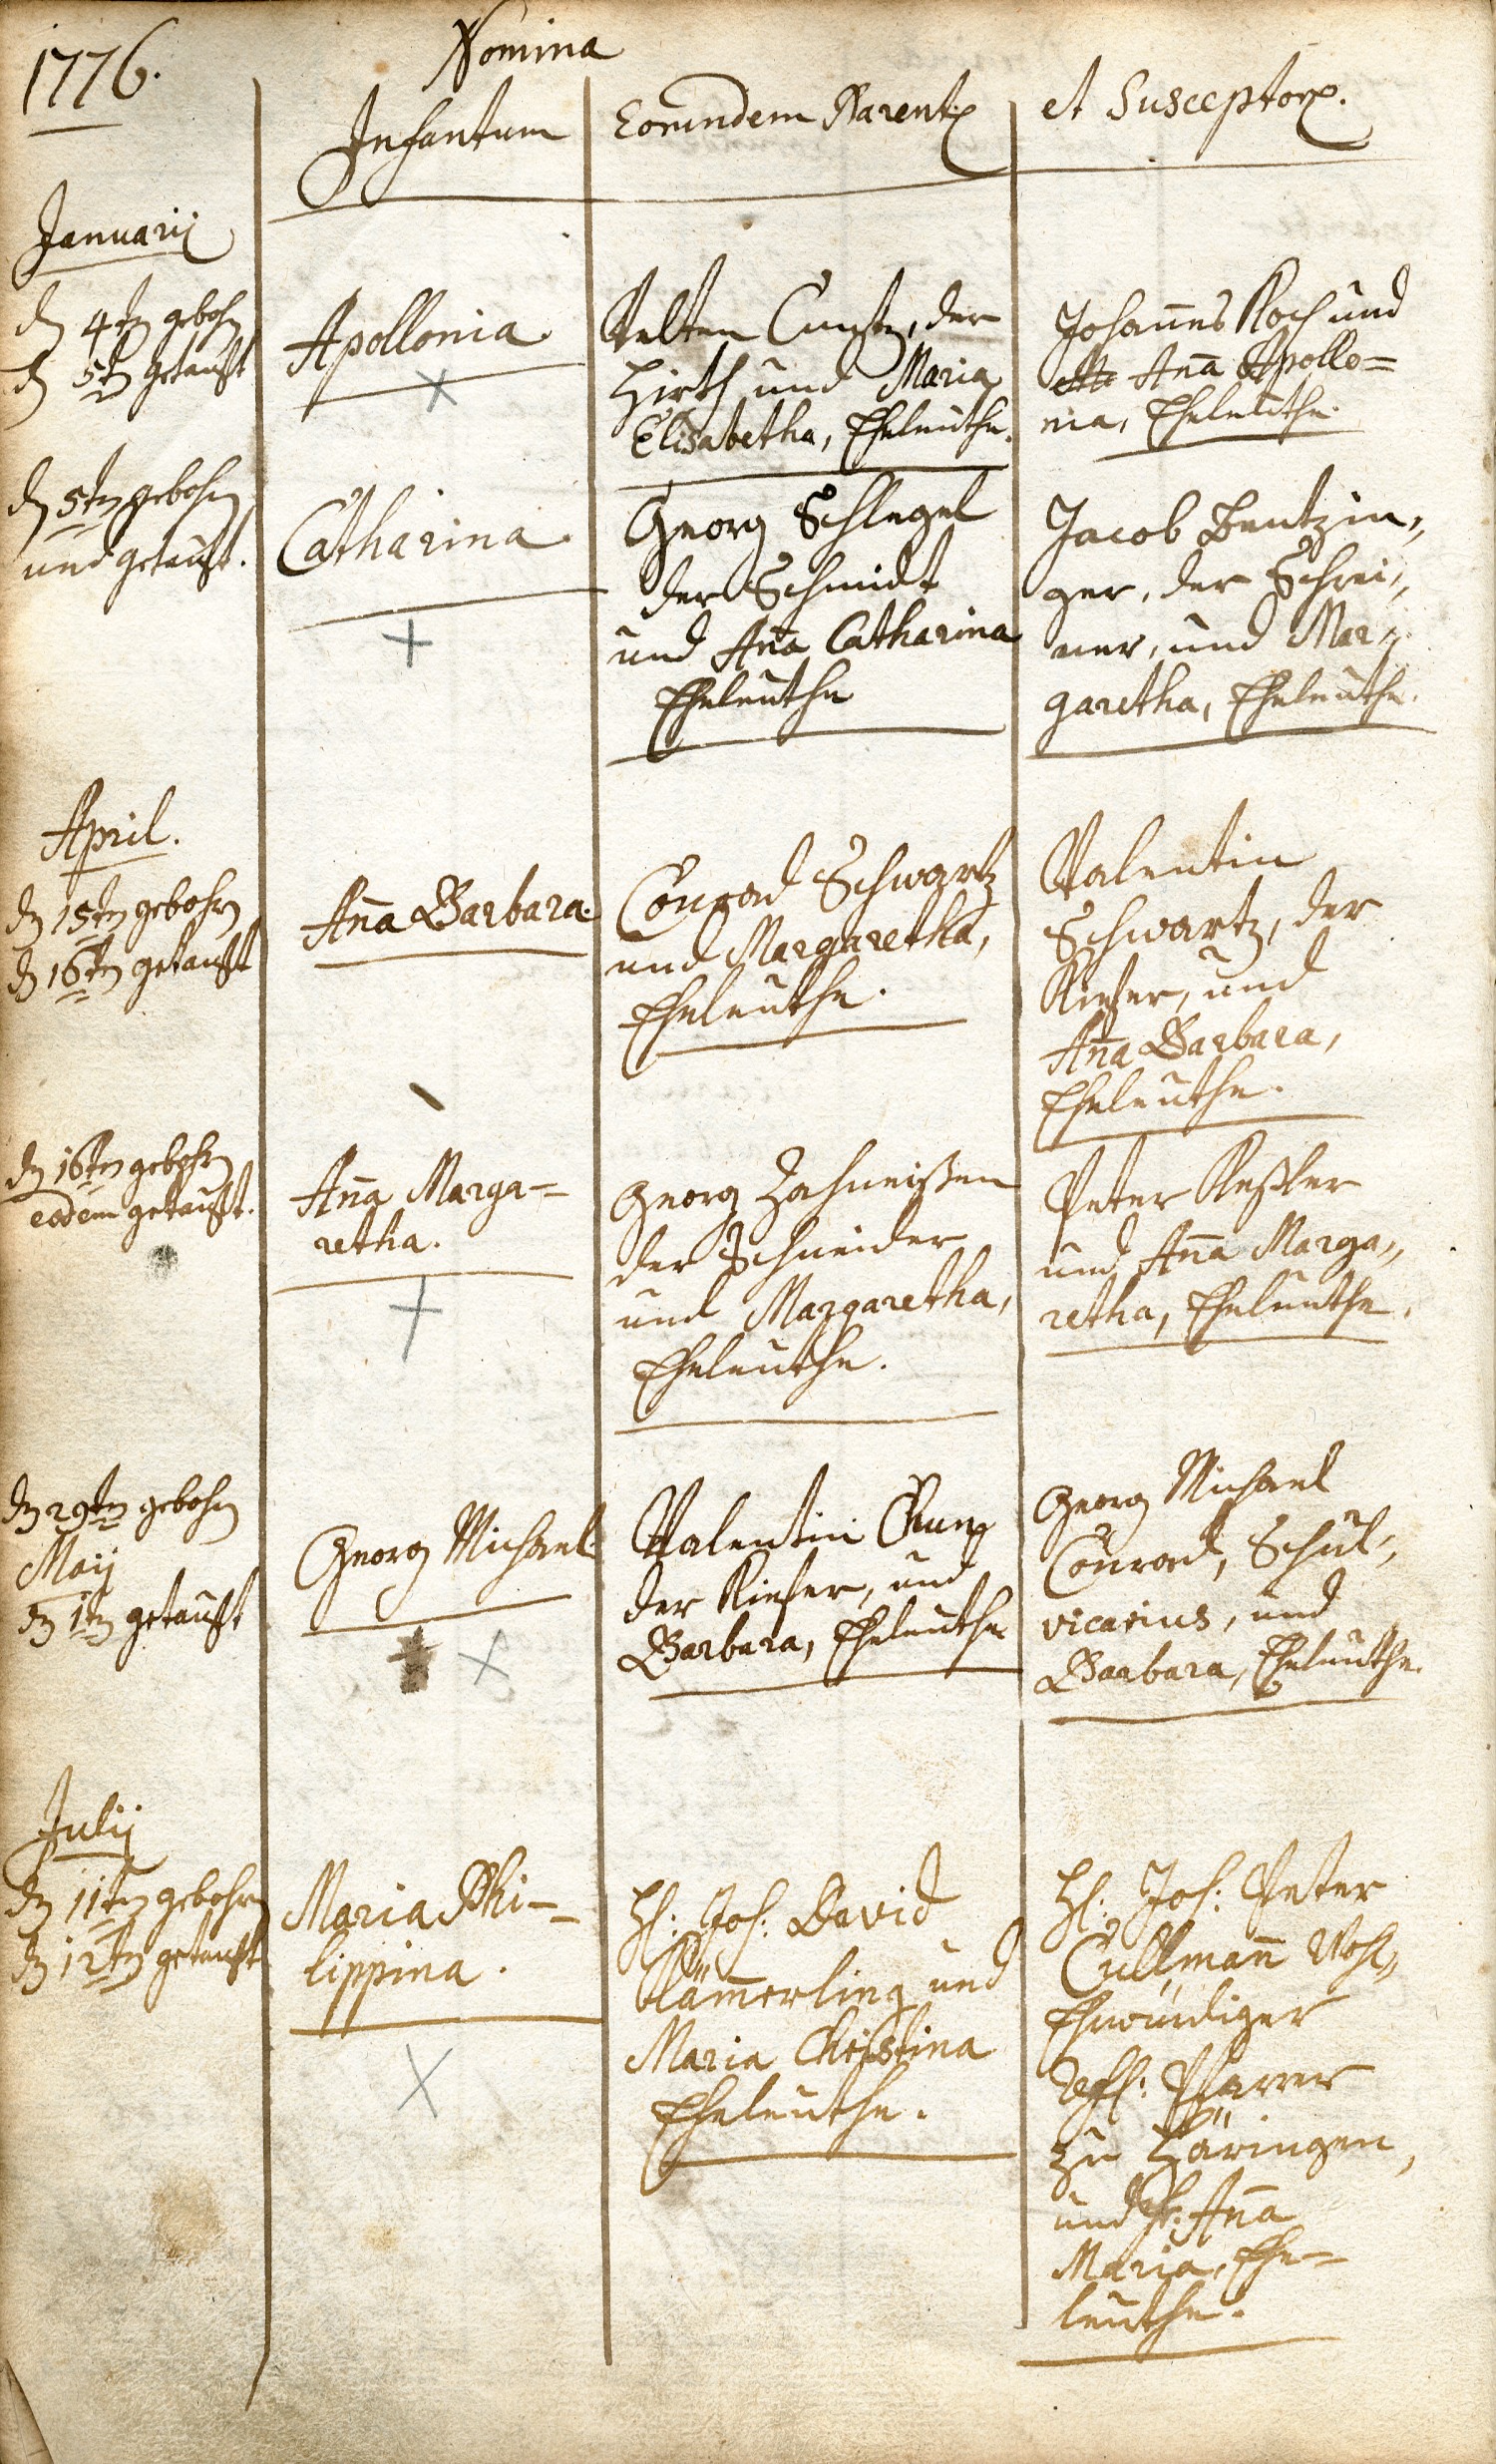 1776.
Nomina
Infantum
Eorundem Parent.
et Susceptor.
Januarii
d 4ten gebohrn
d 5ten getauft
Apollonia.
Velten Cuntz, der
Hirth und Maria
Elisabetha, Eheleuthe.
Johañes Koch und
Añā Apollo=
nia, Eheleuthe.
d 5ten gebohrn
und getauft.
Catharina.
Georg Schlegel
der Schmidt
und Añā Catharina
Eheleuthe
Jacob Bentzin„
ger, der Schrei„
ner, und Mar„
garetha, Eheleuthe.
April.
den 15ten gebohrn
d 16ten getauft
Añā Barbara.
Conrad Schwartz
und Margaretha,
Eheleuthe.
Valentin
Schwartz, der
Kiefer, und
Añā Barbara,
Eheleuthe.
den 16ten gebohrn
eodem getauft.
Añā Marga=
retha.
Georg Zahneißen
der Schneider
und Margaretha,
Eheleuthe.
Peter Keßler
und Añā Marga„
retha, Eheleuthe.
den 29ten gebohrn
Maij
den 1ten getauft
Georg Michael.
Valentin
der Kiefer, und
Barbara, Eheleuthe
Georg Michael
Conrad, Schul„
vicarius, und
Barbara, Eheleuthe.
Julij
den 11ten gebohrn
den 12ten getauft
Maria Phi=
lippina.
H: Joh: David
und
Maria Christina
Eheleuthe.
H: Joh: Peter
Cullmañ Wohl„
Ehrwürdiger
Pfarrer
zu Häringen,
und Fr: Añā
Maria, Ehe=
leuthe.